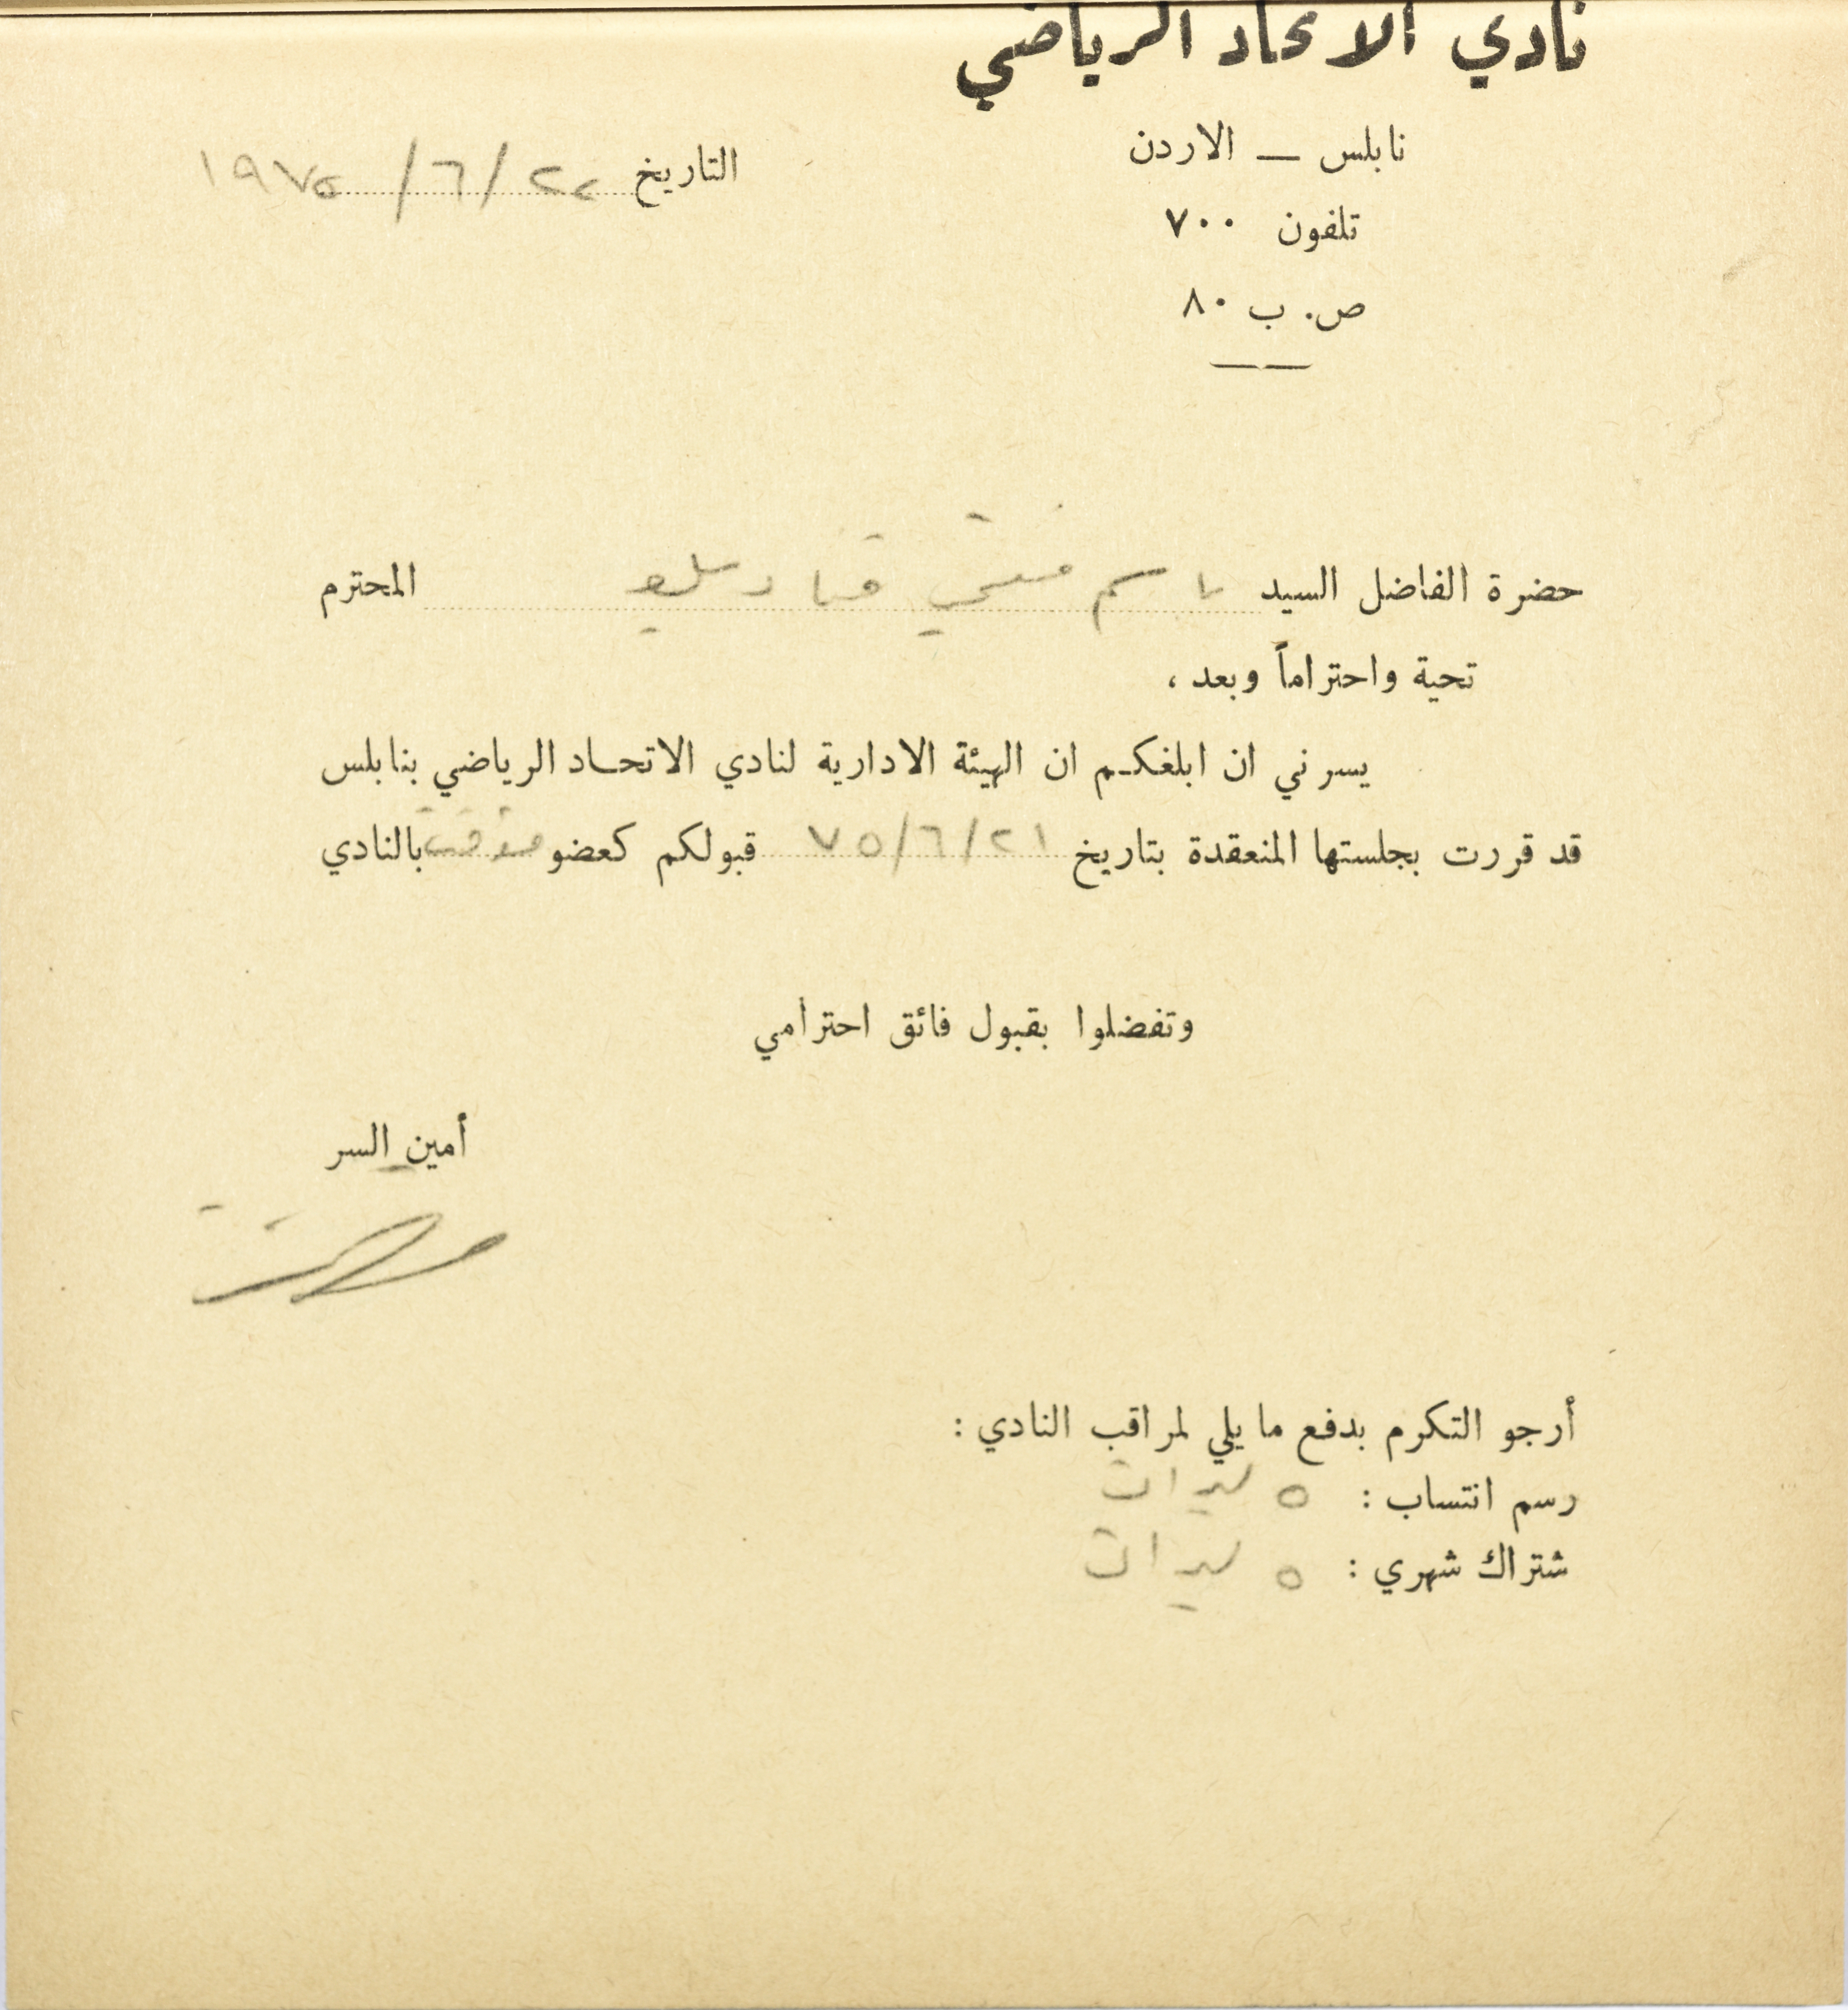 نادي الاتحاد الرياضي
نابلس — الاردن
التاريخ ٢٢/٦/١٩٧٥
تلفون ٧٠٠
ص. ب ٨٠
حضرة الفاضل السيد باسم المحترم
تحية واحتراماً وبعد ،
يسرني ان ابلغكم ان الهيئة الادارية لنادي الاتحاد الرياضي بنابلس
قد قررت بجلستها المنعقدة بتاريخ ٢١/٦/٧٥ قبولكم كعضو مؤقت بالنادي
وتفضلوا بقبول فائق احترامي
أمين السر
أرجو التكرم بدفع ما يلي لمراقب النادي :
رسم انتساب : ٥ ليرات
شتراك شهري : ٥ ليرات